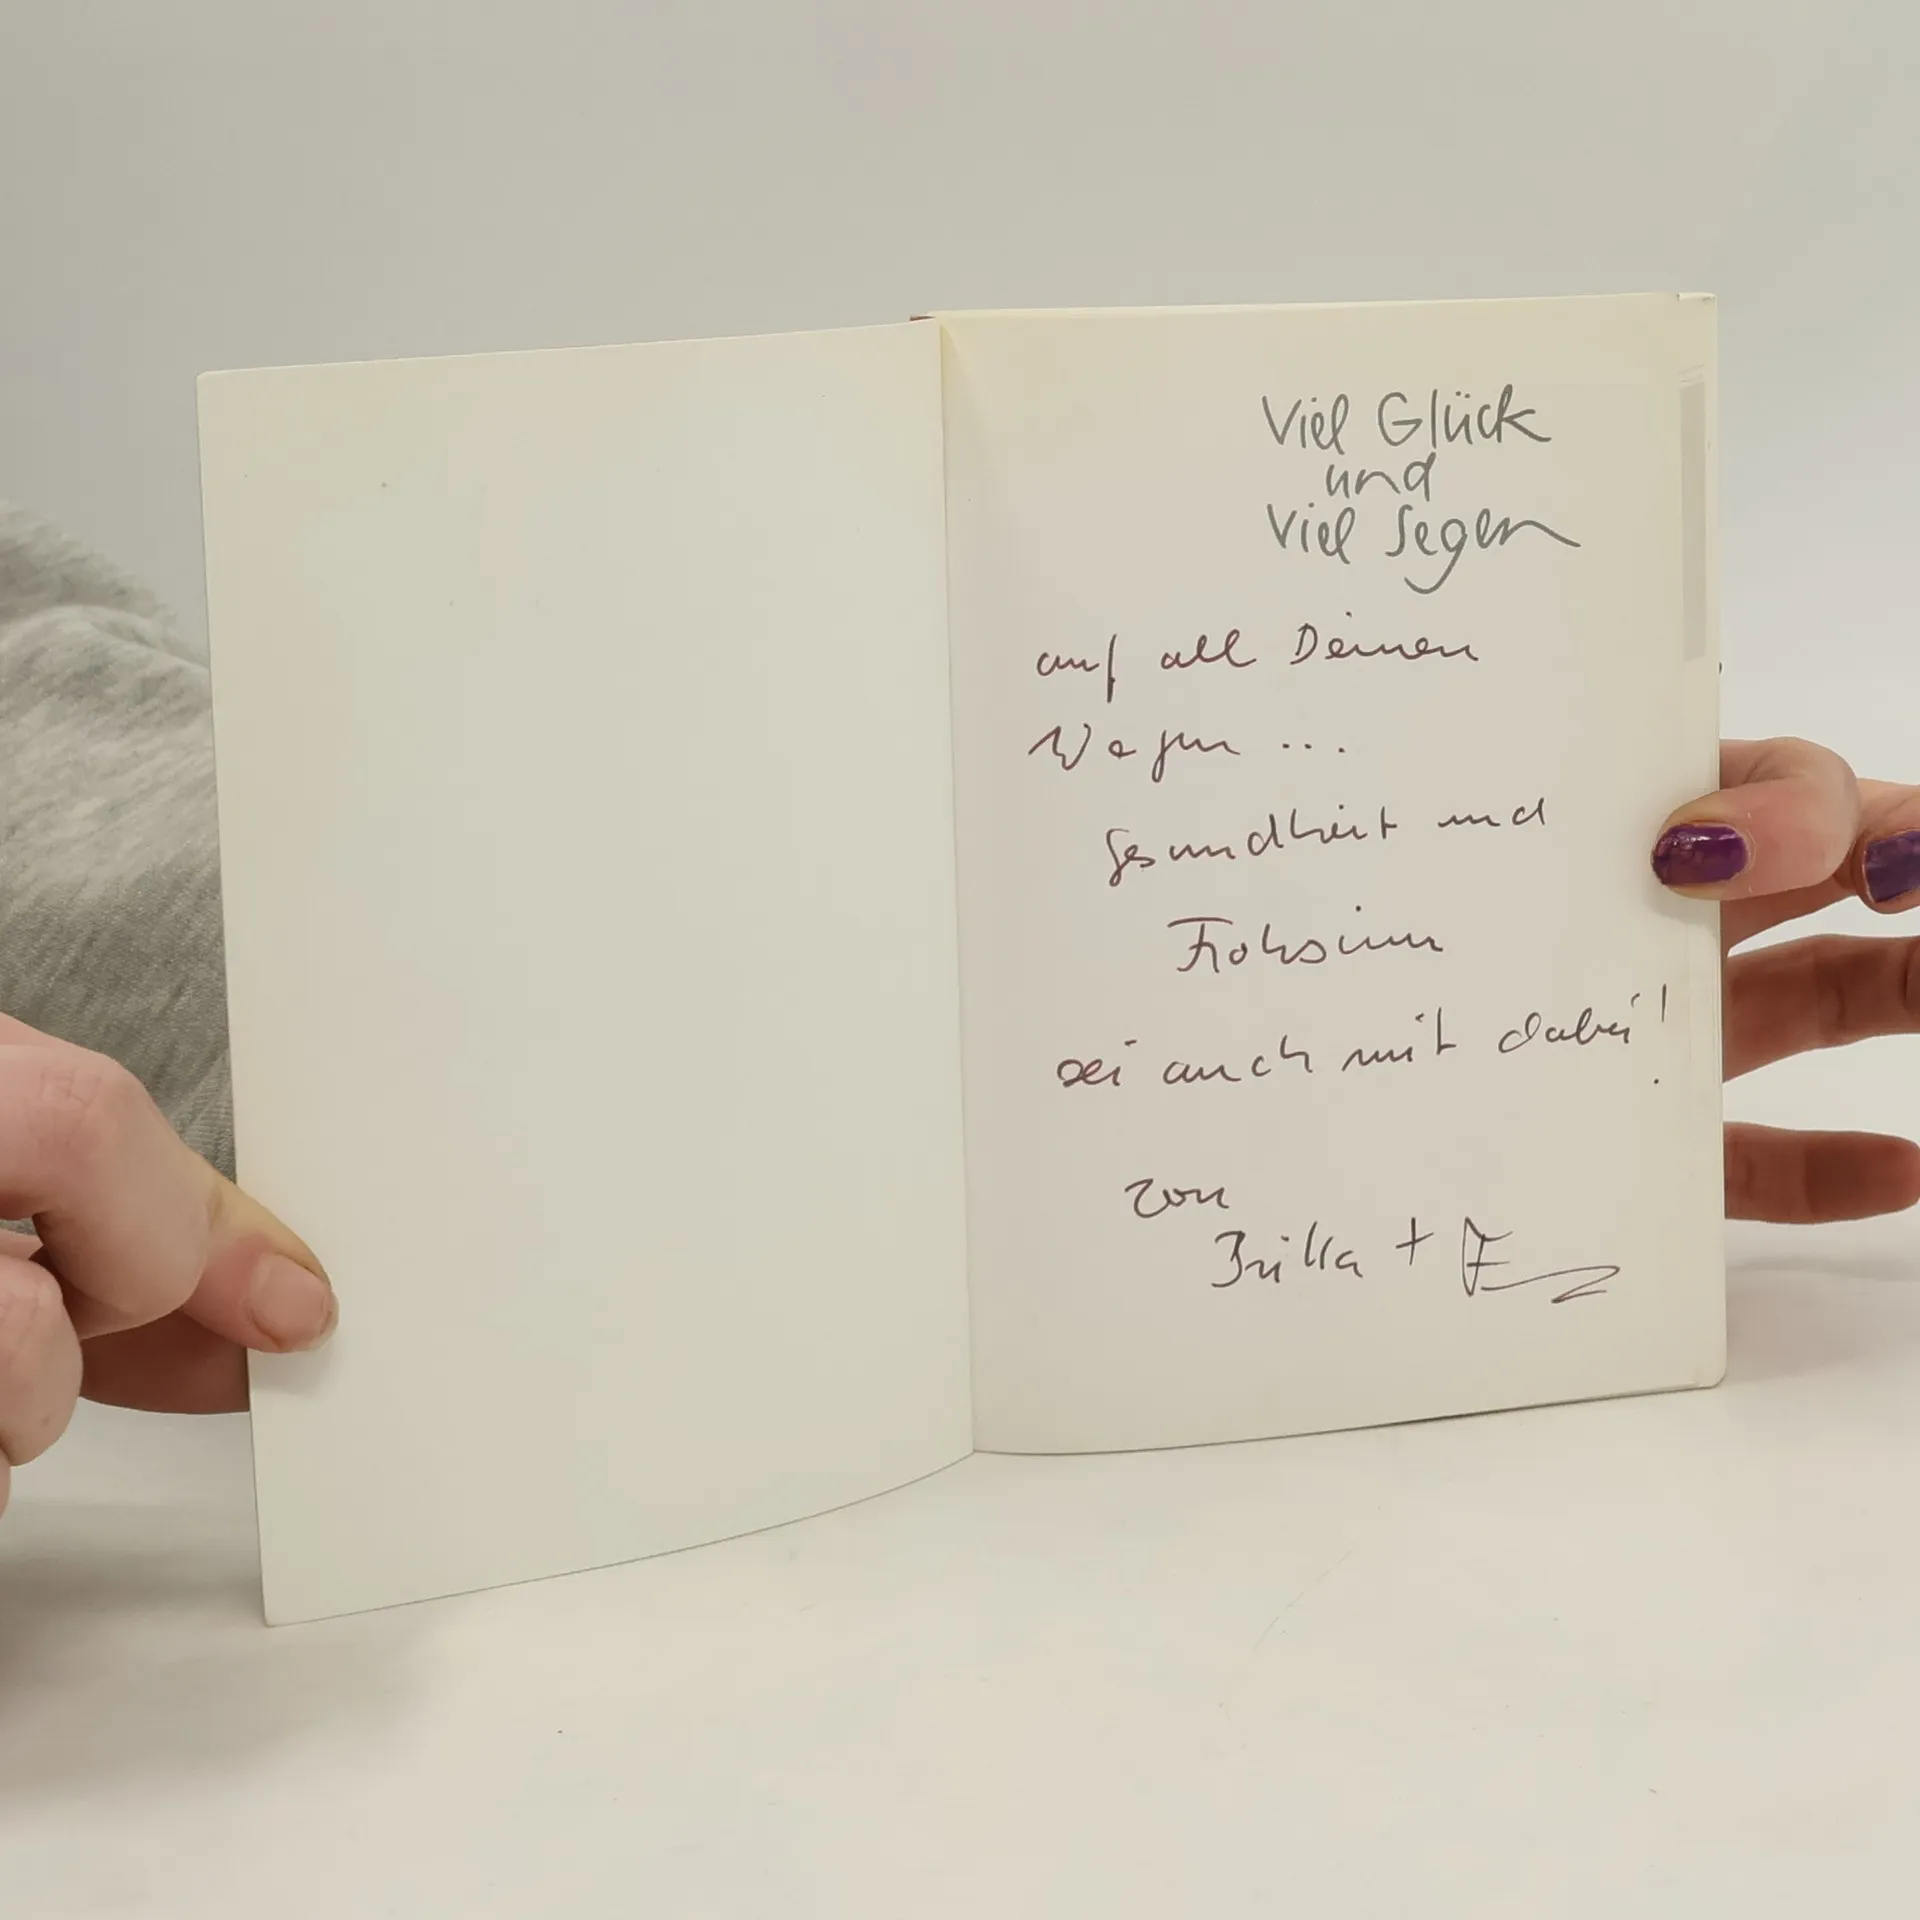 Viel Glück
und
Viel Segen
auf all Deinen
Wegen ...
Gesundheit und
Frohsinn
sei auch mit dabei!
von
+